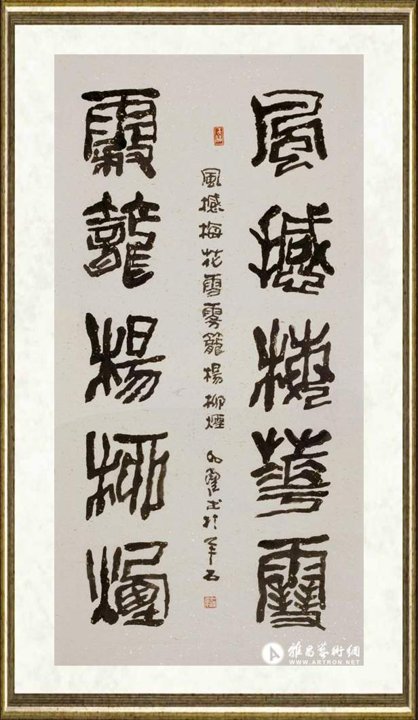 風撼梅華雪
霧籠楊柳煙
風撼梅花雪霧籠楊柳煙
雅昌藝術網
WWW.ARTRON.NET